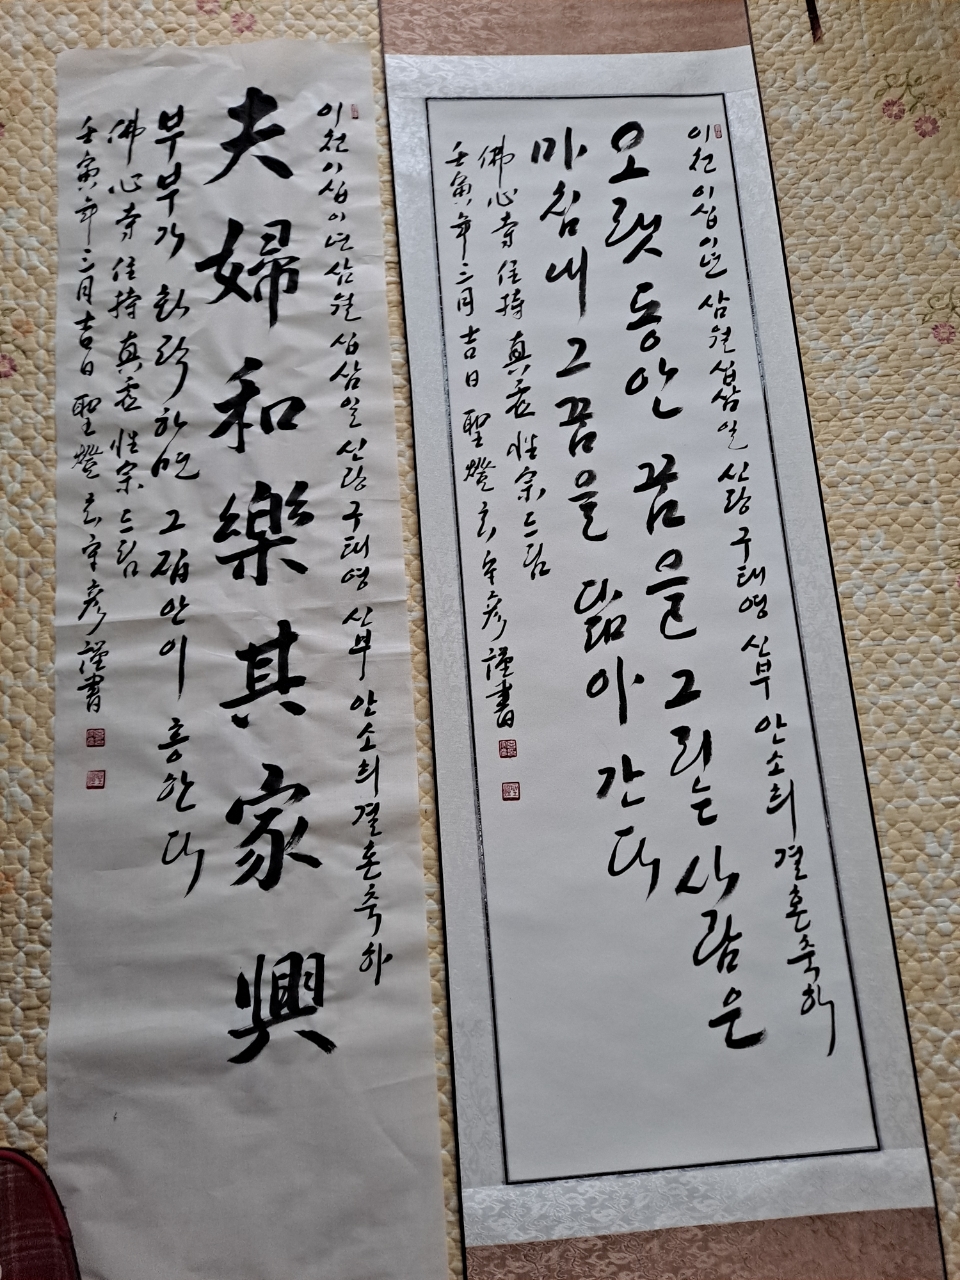 이천이십이년 삼월 십삼일 신랑 구태영 신부 안소희 결혼축하
夫婦和樂其家興
부부가 화락하면 그 집안이 흥한다
佛心寺 住持 真虛 性宗 드림
壬寅年 三月 吉日 聖燈 謹書
이천이십이년 삼월 십삼일 신랑 구태영 신부 안소희 결혼축하
오랫동안 꿈을 그리는 사람은
마침내 그 꿈을 닮아 간다
佛心寺 住持 真虛 性宗 드림
壬寅年 三月 吉日 聖燈 謹書